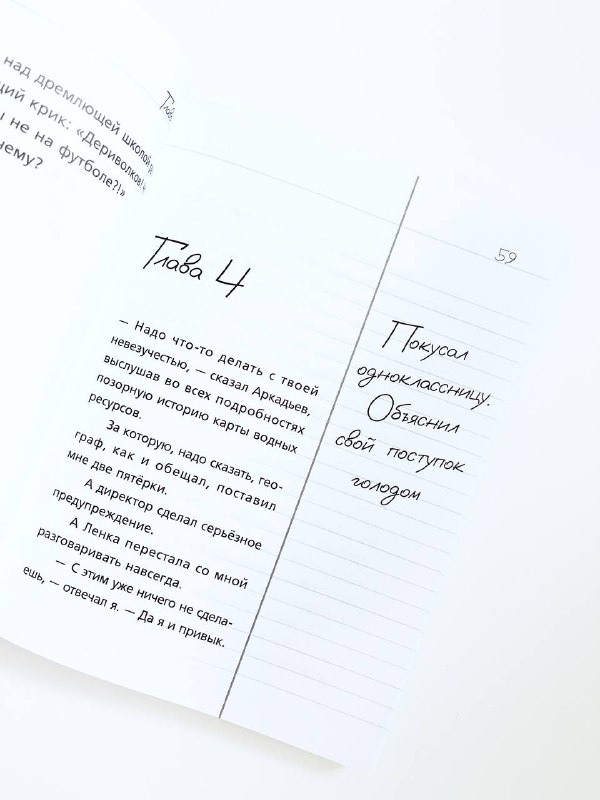 над дремлющей школой
крик: «Дериволков!
не на футболе?!»
Глава 4
— Надо что-то делать с твоей
невезучестью, — сказал Аркадьев,
выслушав во всех подробностях
позорную историю карты водных
ресурсов.
За которую, надо сказать, гео-
граф, как и обещал, поставил
мне две пятёрки.
А директор сделал серьёзное
предупреждение.
А Ленка перестала со мной
разговаривать навсегда.
— С этим уже ничего не сдела-
ешь, — отвечал я. — Да я и привык.
59
Покусал
одноклассницу.
Объяснил
свой поступок
голодом